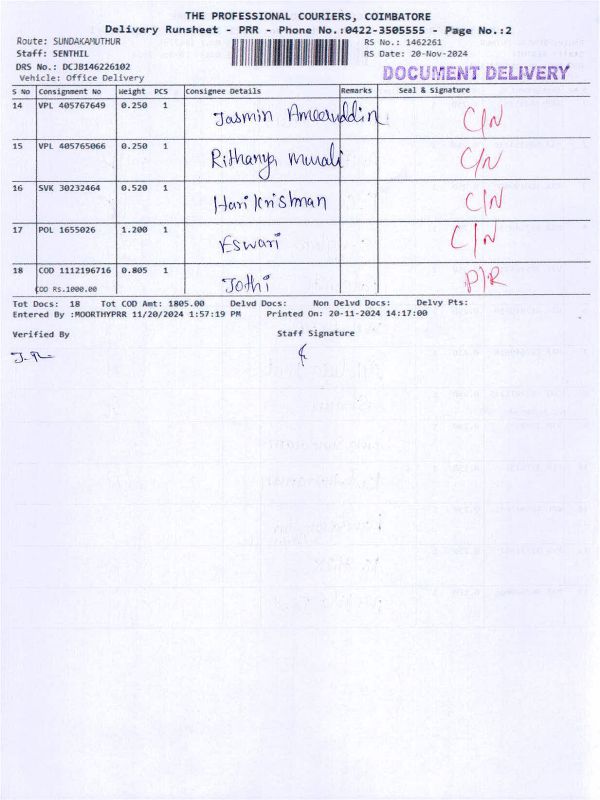 THE PROFESSIONAL COURIERS, COIMBATORE
Delivery Runsheet - PRR - Phone No.:0422-3505555 - Page No.:2
Route: SUNDAKAMUTHUR RS No.: 1462261
Staff: SENTHIL RS Date: 20-Nov-2024
DRS No.: DCJB146226102 DOCUMENT DELIVERY
Vehicle: Office Delivery
S No Consignment No Weight PCS Consignee Details Remarks Seal & Signature
14 VPL 405767649 0.250 1 Jasmin Ameeruddin C/N
15 VPL 405765066 0.250 1 Rithanya Murali C/N
16 SVK 30232464 0.520 1 Hari Krishnan C/N
17 POL 1655026 1.200 1 Eswari C/N
18 COD 1112196716 0.805 1 Jothi P/R
COD RS.1000.00
Tot Docs: 18 Tot COD Amt: 1805.00 Delvd Docs: Non Delvd Docs: Delvy Pts:
Entered By :MOORTHYPRR 11/20/2024 1:57:19 PM Printed On: 20-11-2024 14:17:00
Verified By Staff Signature